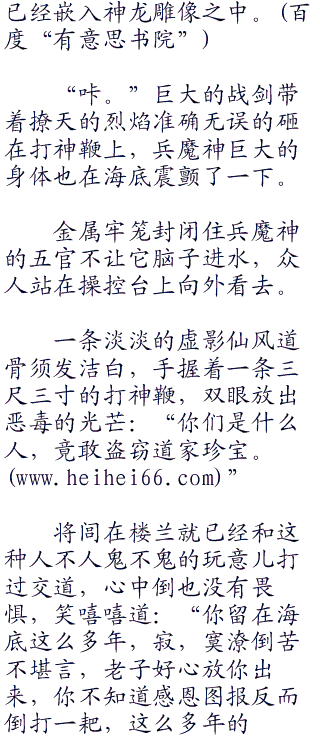 已经嵌入神龙雕像之中。(百
度“有意思书院”)
“咔。”巨大的战剑带
着撩天的烈焰准确无误的砸
在打神鞭上，兵魔神巨大的
身体也在海底震颤了一下。
金属牢笼封闭住兵魔神
的五官不让它脑子进水，众
人站在操控台上向外看去。
一条淡淡的虚影仙风道
骨须发洁白，手握着一条三
尺三寸的打神鞭，双眼放出
恶毒的光芒：“你们是什么
人，竟敢盗窃道家珍宝。
(www.heihei66.com)”
将闾在楼兰就已经和这
种人不人鬼不鬼的玩意儿打
过交道，心中倒也没有畏
惧，笑嘻嘻道：“你留在海
底这么多年，寂，寞潦倒苦
不堪言，老子好心放你出
来，你不知道感恩图报反而
倒打一耙，这么多年的